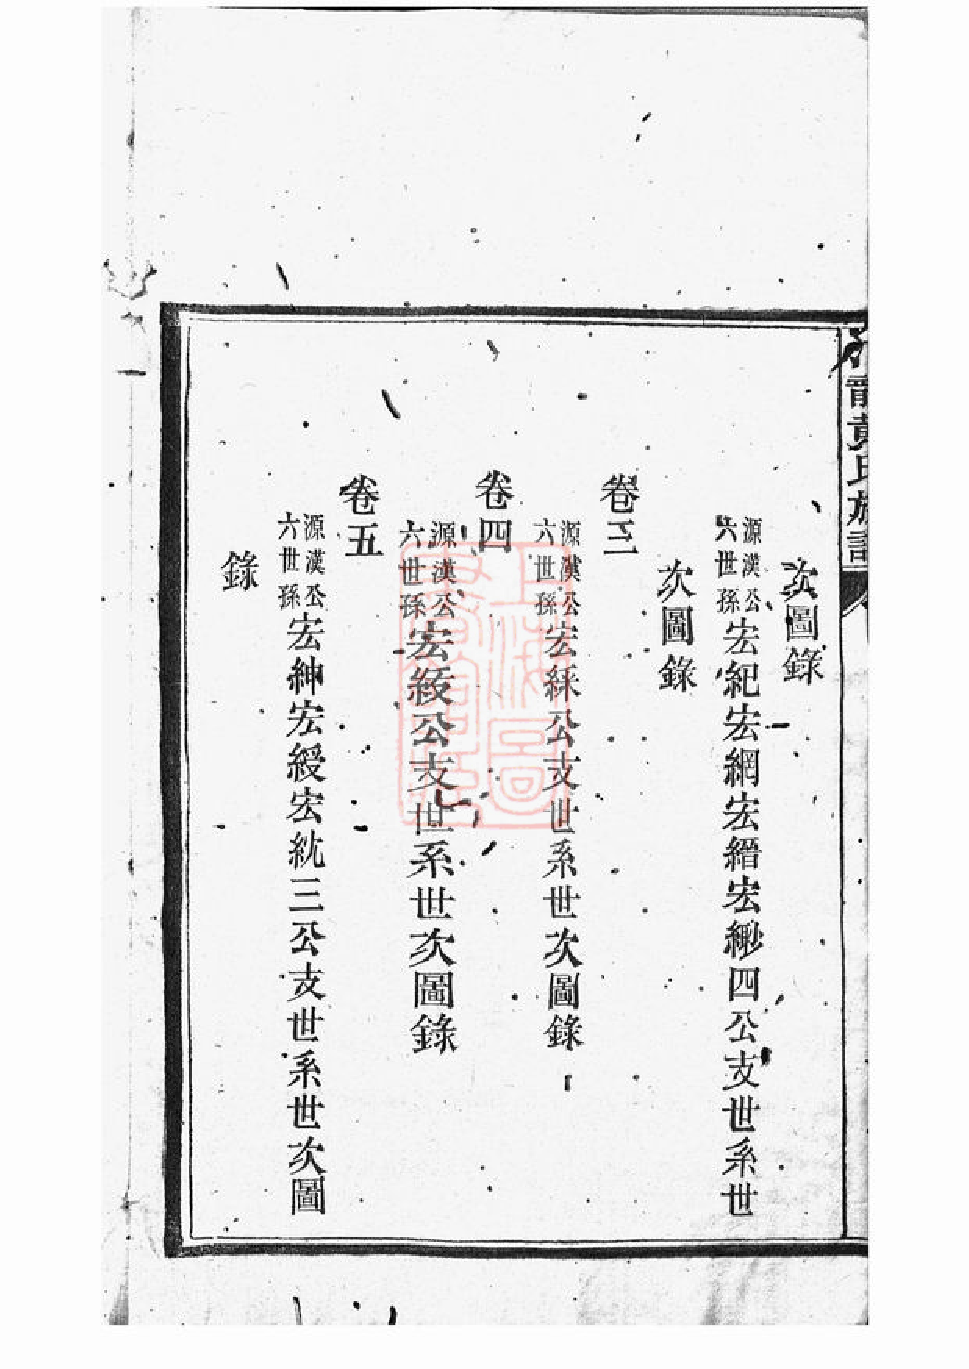 黃氏族譜
次圖錄
源漢公六世孫宏紀宏網宏縉宏緲四公支世系世
次圖錄
卷三
源漢公六世孫宏綵公支世系世次圖錄
卷四
源漢公六世孫宏綏公支世系世次圖錄
卷五
源漢公六世孫宏紳宏綬宏統三公支世系世次圖
錄
上海圖書館藏